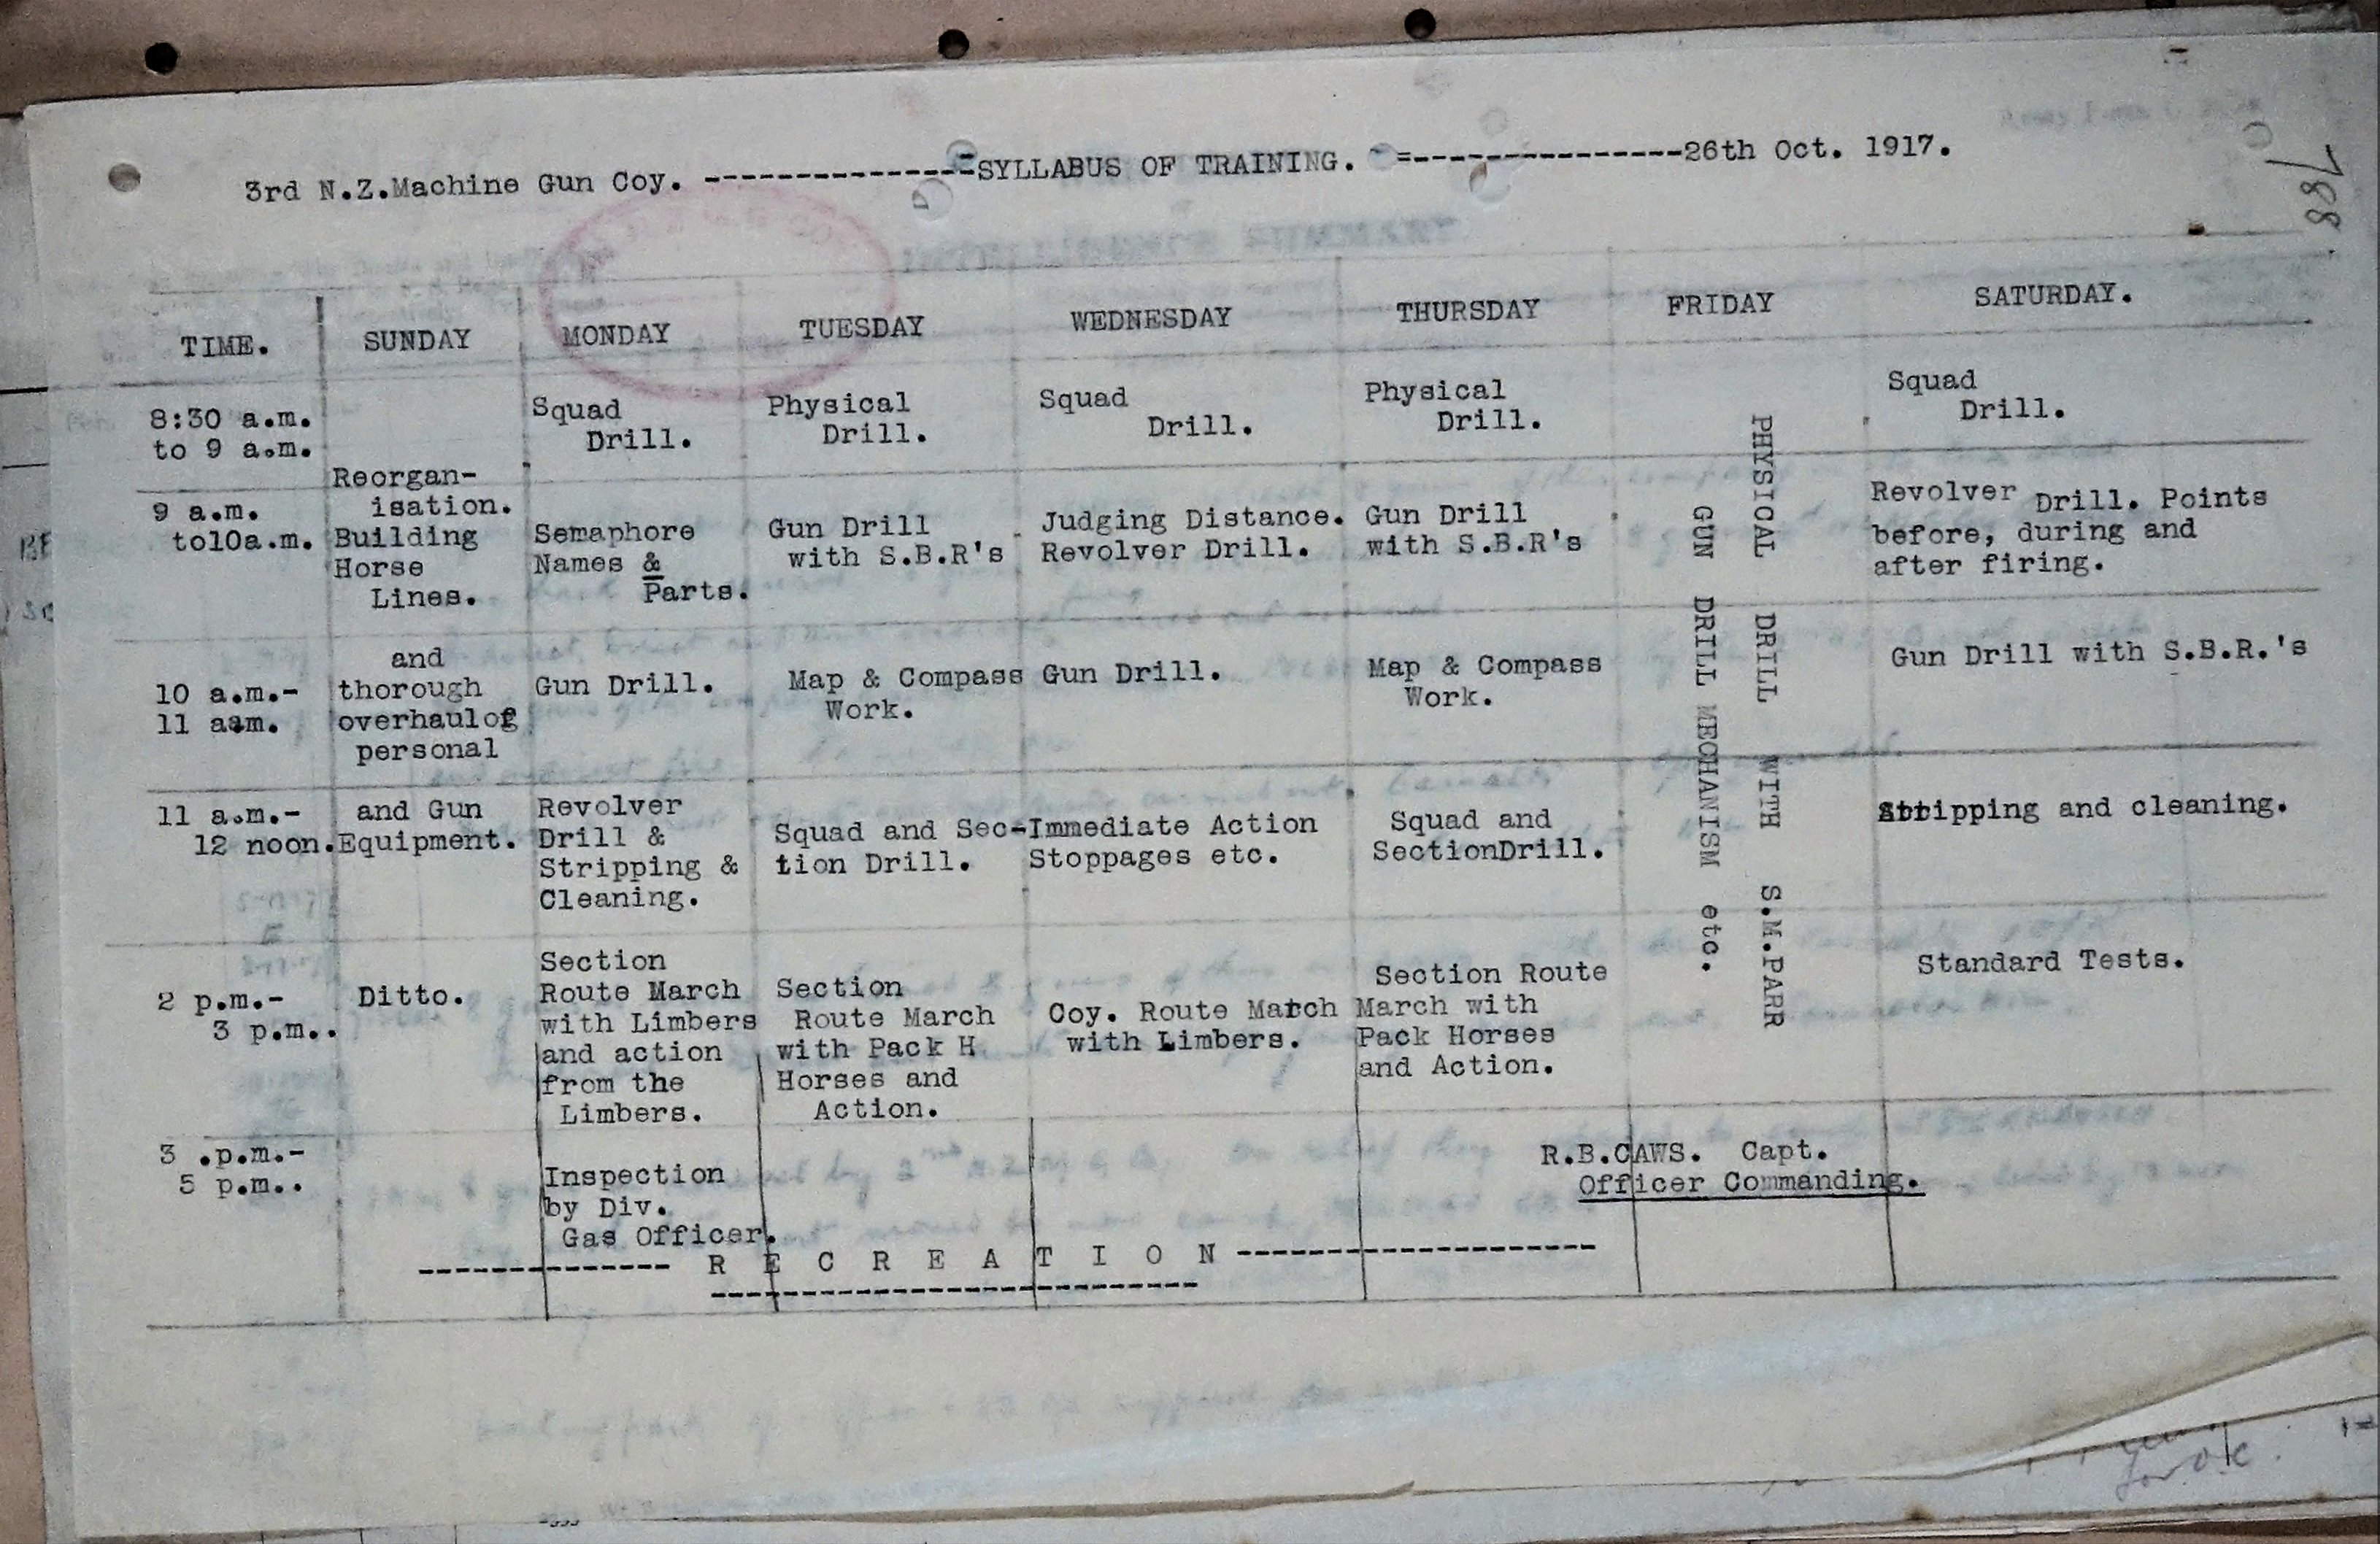 3rd N.Z.Machine Gun Coy. ----------------SYLLABUS OF TRAINING. -=---------------26th Oct. 1917.
788
TIME. SUNDAY MONDAY TUESDAY WEDNESDAY THURSDAY FRIDAY SATURDAY.
8:30 a.m.
to 9 a.m.
Squad
Drill.
Physical
Drill.
Squad
Drill.
Physical
Drill.
Squad
Drill.
Reorgan-
isation.
Building
Horse
Lines.
and
thorough
overhaulof
personal
and Gun
Equipment.
9 a.m.
to10a.m.
Semaphore
Names &
Parts.
Gun Drill
with S.B.R's
Judging Distance.
Revolver Drill.
Gun Drill
with S.B.R's
PHYSICAL DRILL WITH S.M.PARR
GUN DRILL MECHANISM etc.
Revolver Drill. Points
before, during and
after firing.
10 a.m.-
11 aam.
Gun Drill.
Map & Compass
Work.
Gun Drill.
Map & Compass
Work.
Gun Drill with S.B.R.'s
11 a.m.-
12 noon.
Revolver
Drill &
Stripping &
Cleaning.
Squad and Sec-
tion Drill.
Immediate Action
Stoppages etc.
Squad and
SectionDrill.
Stripping and cleaning.
2 p.m.-
3 p.m..
Ditto.
Section
Route March
with Limbers
and action
from the
Limbers.
Section
Route March
with Pack H
Horses and
Action.
Coy. Route March
with Limbers.
Section Route
March with
Pack Horses
and Action.
Standard Tests.
3 .p.m.-
5 p.m..
Inspection
by Div.
Gas Officer.
R.B.CAWS. Capt.
Officer Commanding.
-------------- R E C R E A T I O N --------------------
---------------------------
for O.C.